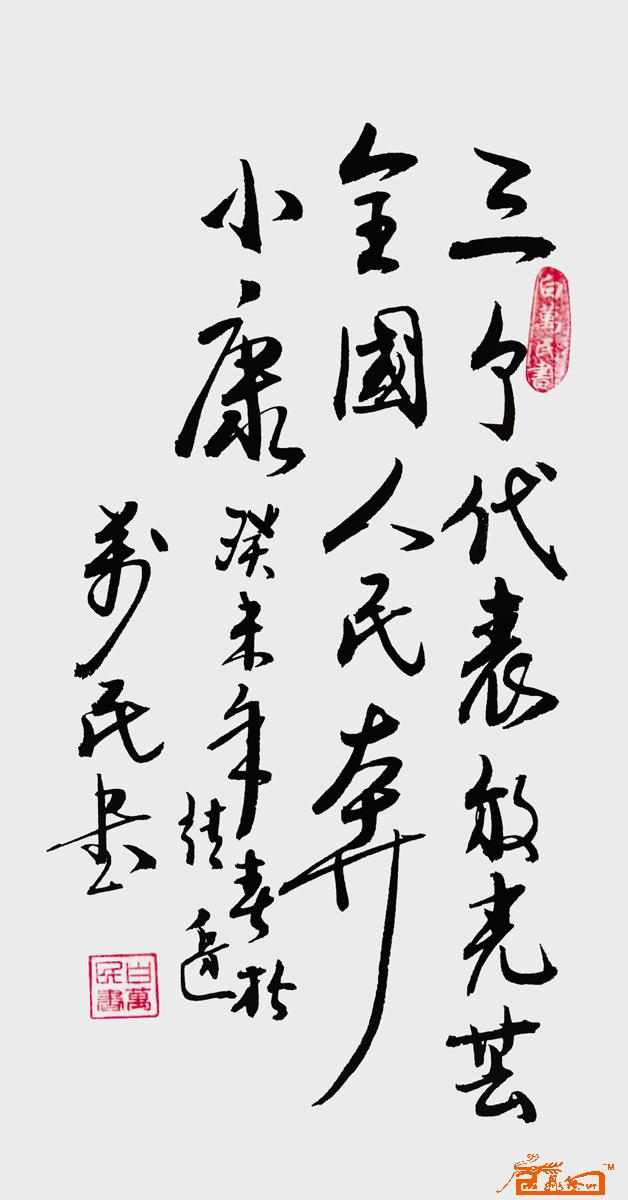 三个代表放光芒
全國人民奔
小康
癸未年春於
萬民书
白萬民書
白萬民書